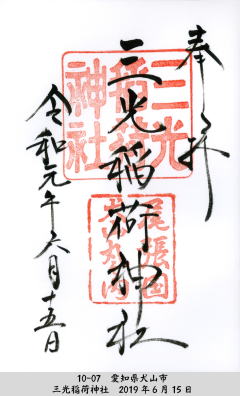 奉拝
三光稲荷神社
令和元年六月十五日
三光稲荷神社
尾張国犬山丸の内
10-07 愛知県犬山市
三光稲荷神社 2019年6月15日